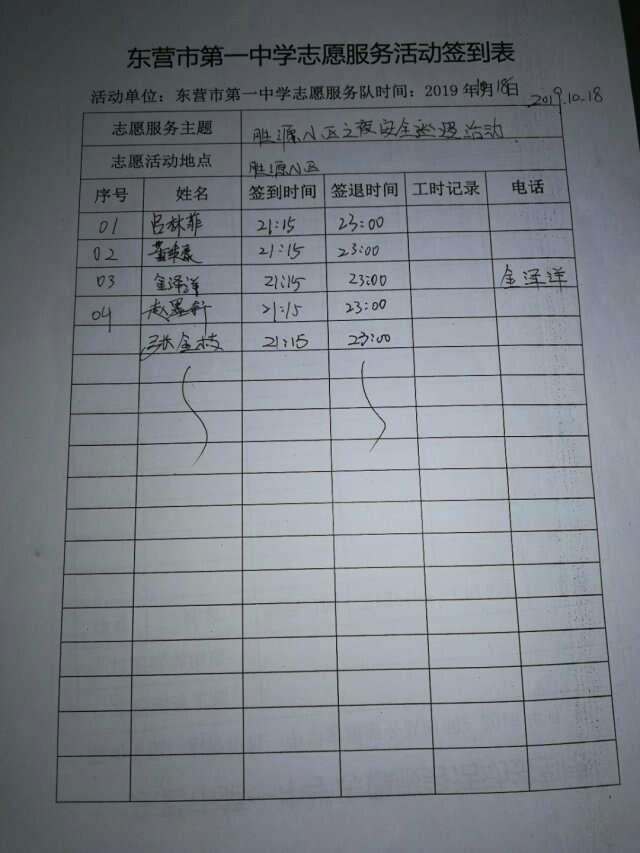 东营市第一中学志愿服务活动签到表
活动单位：东营市第一中学志愿服务队时间：2019年10月18日 2019.10.18
志愿服务主题 胜源小区之夜安全巡逻活动
志愿活动地点 胜源小区
序号 姓名 签到时间 签退时间 工时记录 电话
01 吕林菲 21:15 23:00
02 21:15 23:00
03 金泽洋 21:15 23:00 金泽洋
04 赵墨轩 21:15 23:00
张金枝 21:15 23:00